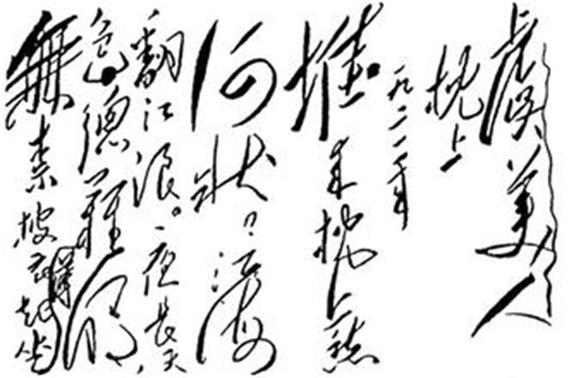 虞美人
枕上
一九二一年
堆来枕上愁
何状?江海
翻波浪。夜長天
色總難明,
無奈披衣起坐